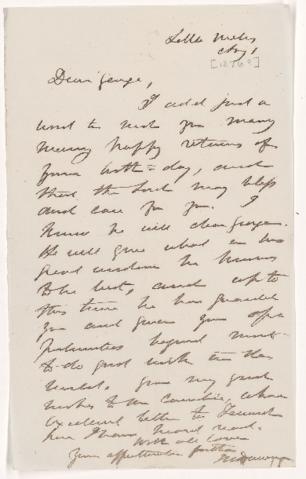 Aug 1
[1876?]
Dear George,
I add just a
word to wish you many
many happy returns of
your birth-day, and
that the Lord may bless
and care for you. I
know he will dear George.
He will give what in his
great wisdom he knows
to be best, and up to
this time he has guarded
you and given you opp
ortunities beyond most
to do good with in the
world. Give my good
wishes to
excellent letter to
here I have heard read.
With all love
Your affectionate